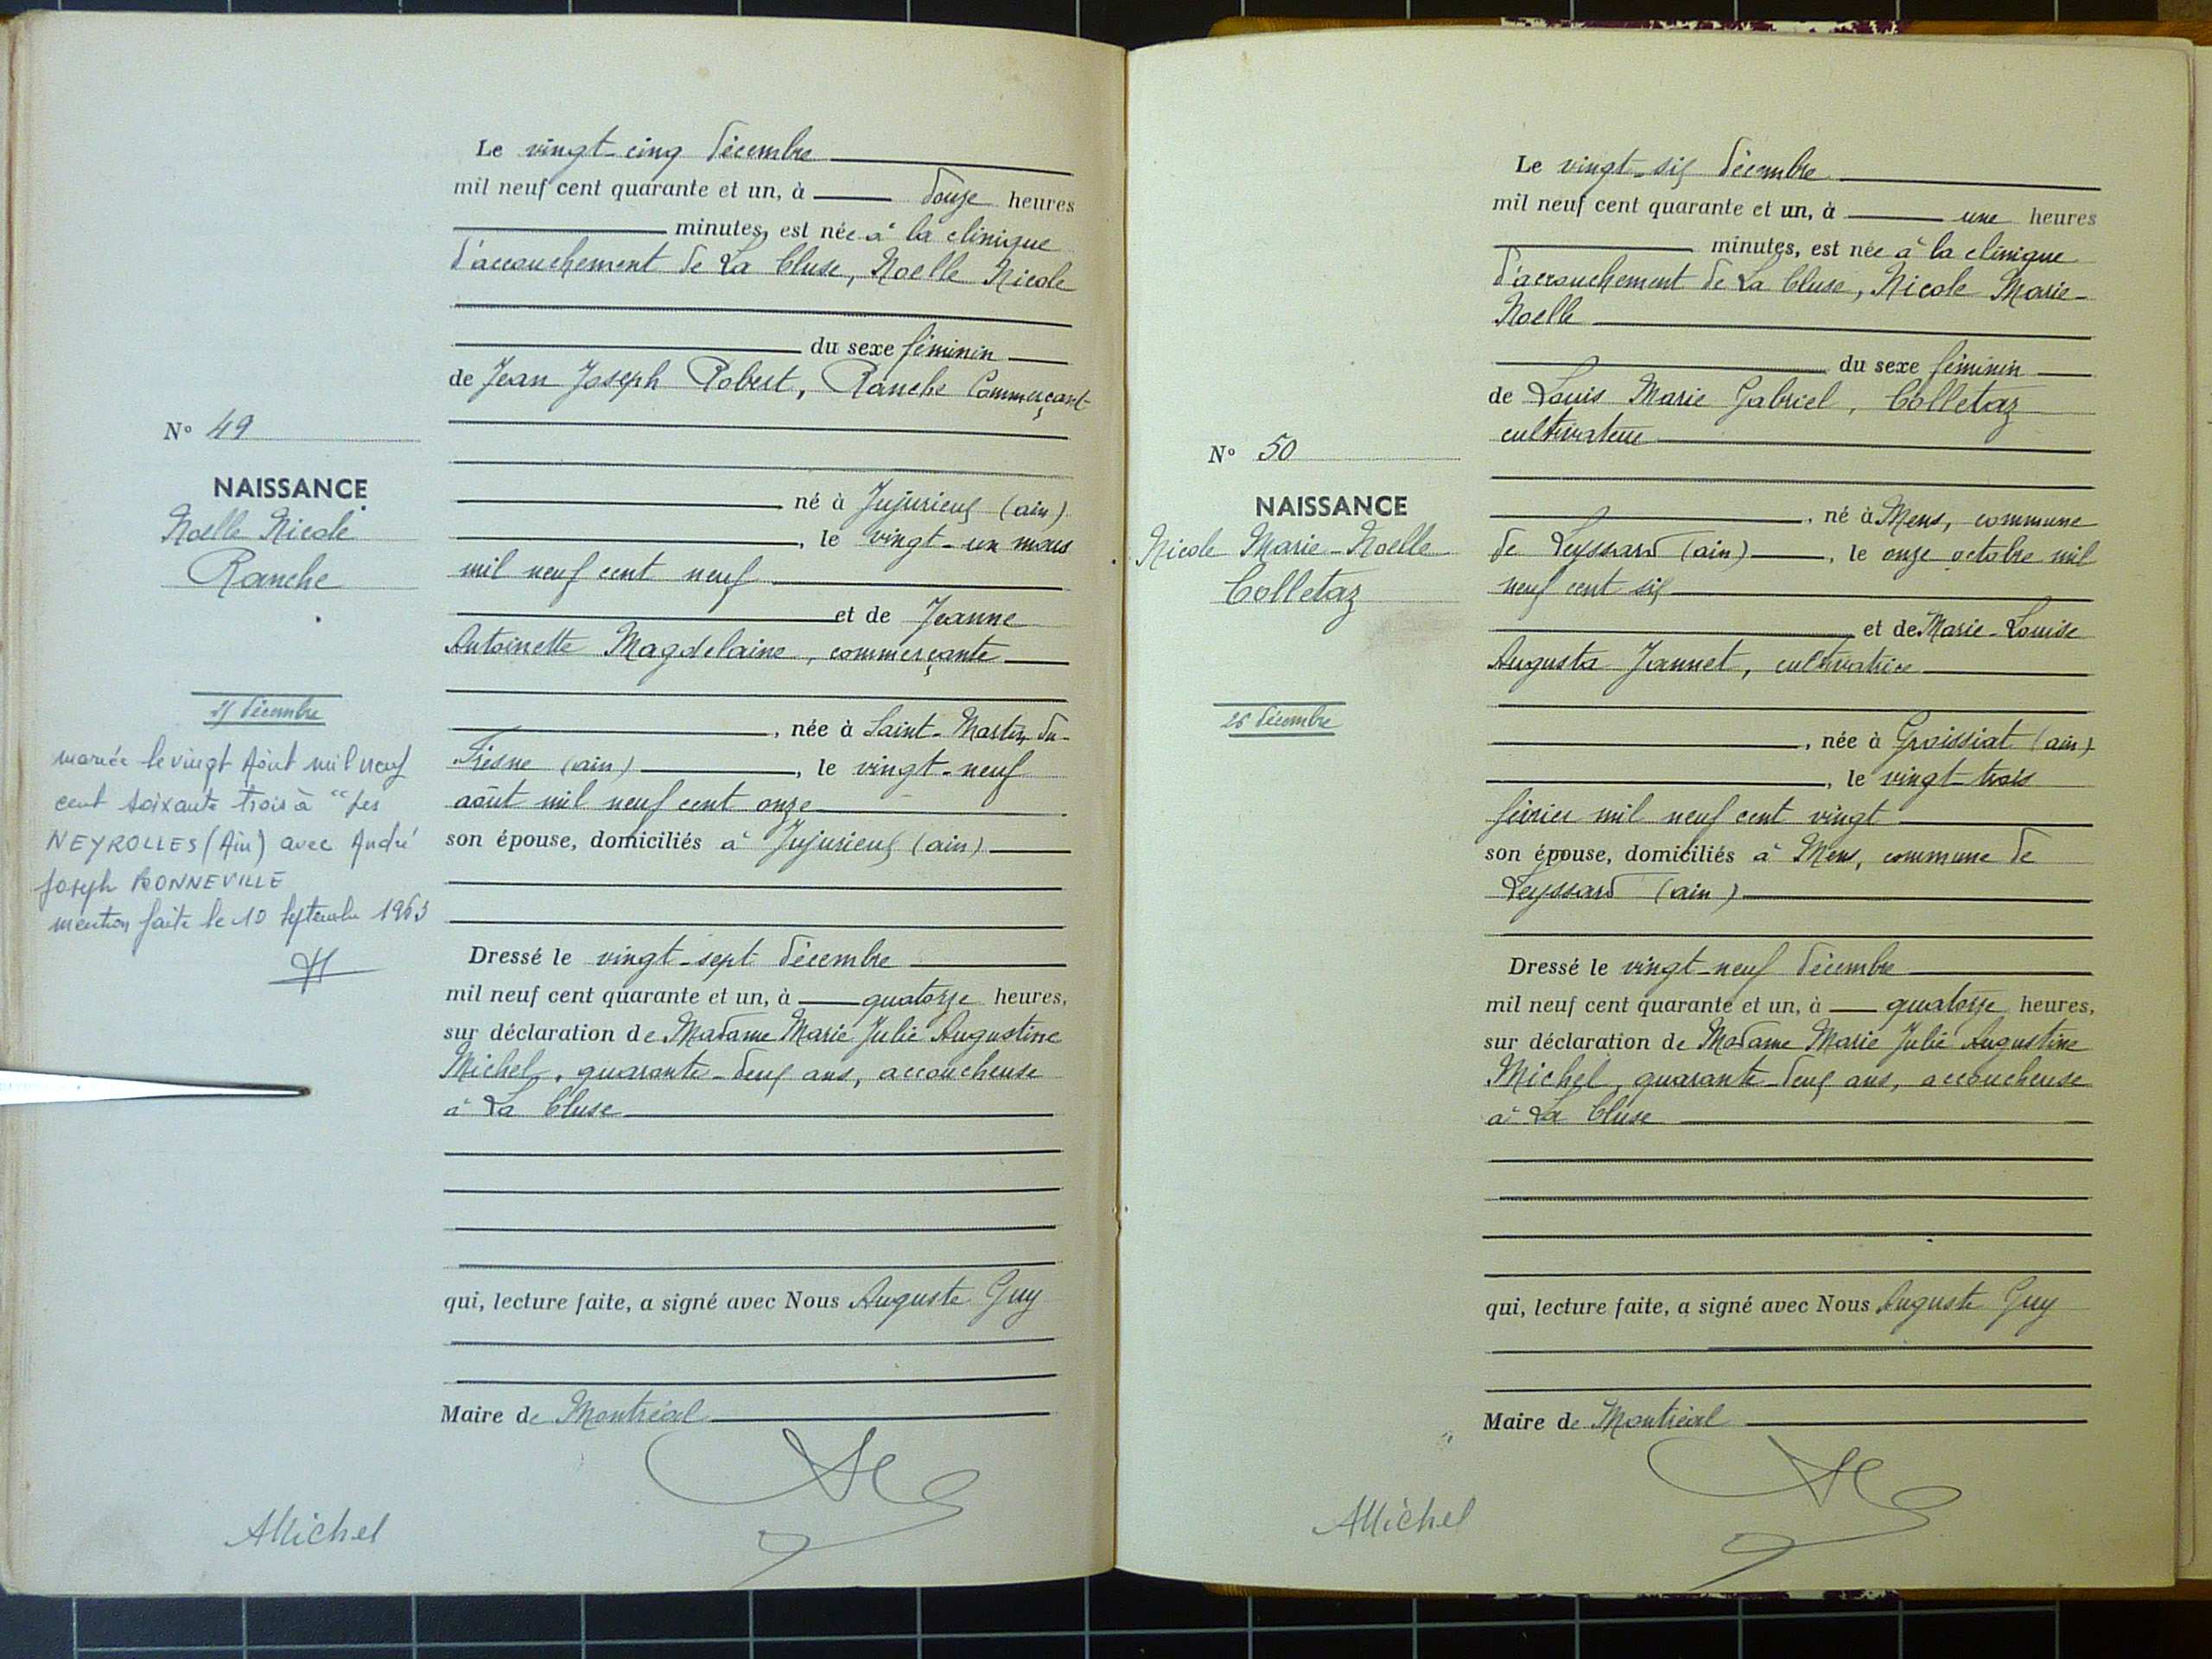 Le vingt-cinq décembre
mil neuf cent quarante et un, à douze heures
minutes, est née à la clinique
d'accouchement de La Cluse, Noelle Nicole
du sexe féminin
de Jean Joseph Robert, Ranche Commerçant
N° 49
NAISSANCE
Noelle Nicole
Ranche
né à Jujurieux (ain)
, le vingt-un mars
mil neuf cent neuf
et de Jeanne
Antoinette Magdelaine, commerçante
25 décembre
, née à Saint-Martin du-
Frésne (ain) , le vingt-neuf
août mil neuf cent onze
son épouse, domiciliés à Jujurieux (ain)
mariée le vingt Août mil neuf
cent soixante trois à "Les
NEYROLLES (Ain) avec André
Joseph BONNEVILLE
mention faite le 10 Septembre 1963
Dressé le vingt-sept décembre
mil neuf cent quarante et un, à quatorze heures,
sur déclaration de Madame Marie Julie Augustine
Michel, quarante-deux ans, accoucheuse
à La Cluse
qui, lecture faite, a signé avec Nous Auguste Guy
Maire de Montréal
AMichel
Le vingt-six décembre
mil neuf cent quarante et un, à une heures
minutes, est née à la clinique
d'accouchement de La Cluse, Nicole Marie-
Noelle
du sexe féminin
de Louis Marie Gabriel, Colletaz
cultivateur
N° 50
NAISSANCE
Nicole Marie-Noelle
Colletaz
, né à Mens, commune
de Leyssard (ain) , le onze octobre mil
neuf cent six
et de Marie-Louise
Augusta Jannet, cultivatrice
26 décembre
, née à Groissiat (ain)
, le vingt-trois
février mil neuf cent vingt
son épouse, domiciliés à Mens, commune de
Leyssard (ain)
Dressé le vingt-neuf décembre
mil neuf cent quarante et un, à quatorze heures,
sur déclaration de Madame Marie Julie Augustine
Michel, quarante-deux ans, accoucheuse
à La Cluse
qui, lecture faite, a signé avec Nous Auguste Guy
Maire de Montréal
AMichel